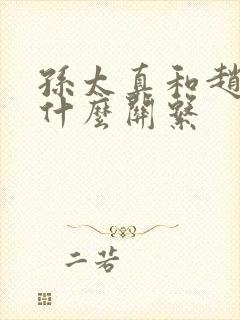 孫太真和趙
什麼關繫
二若